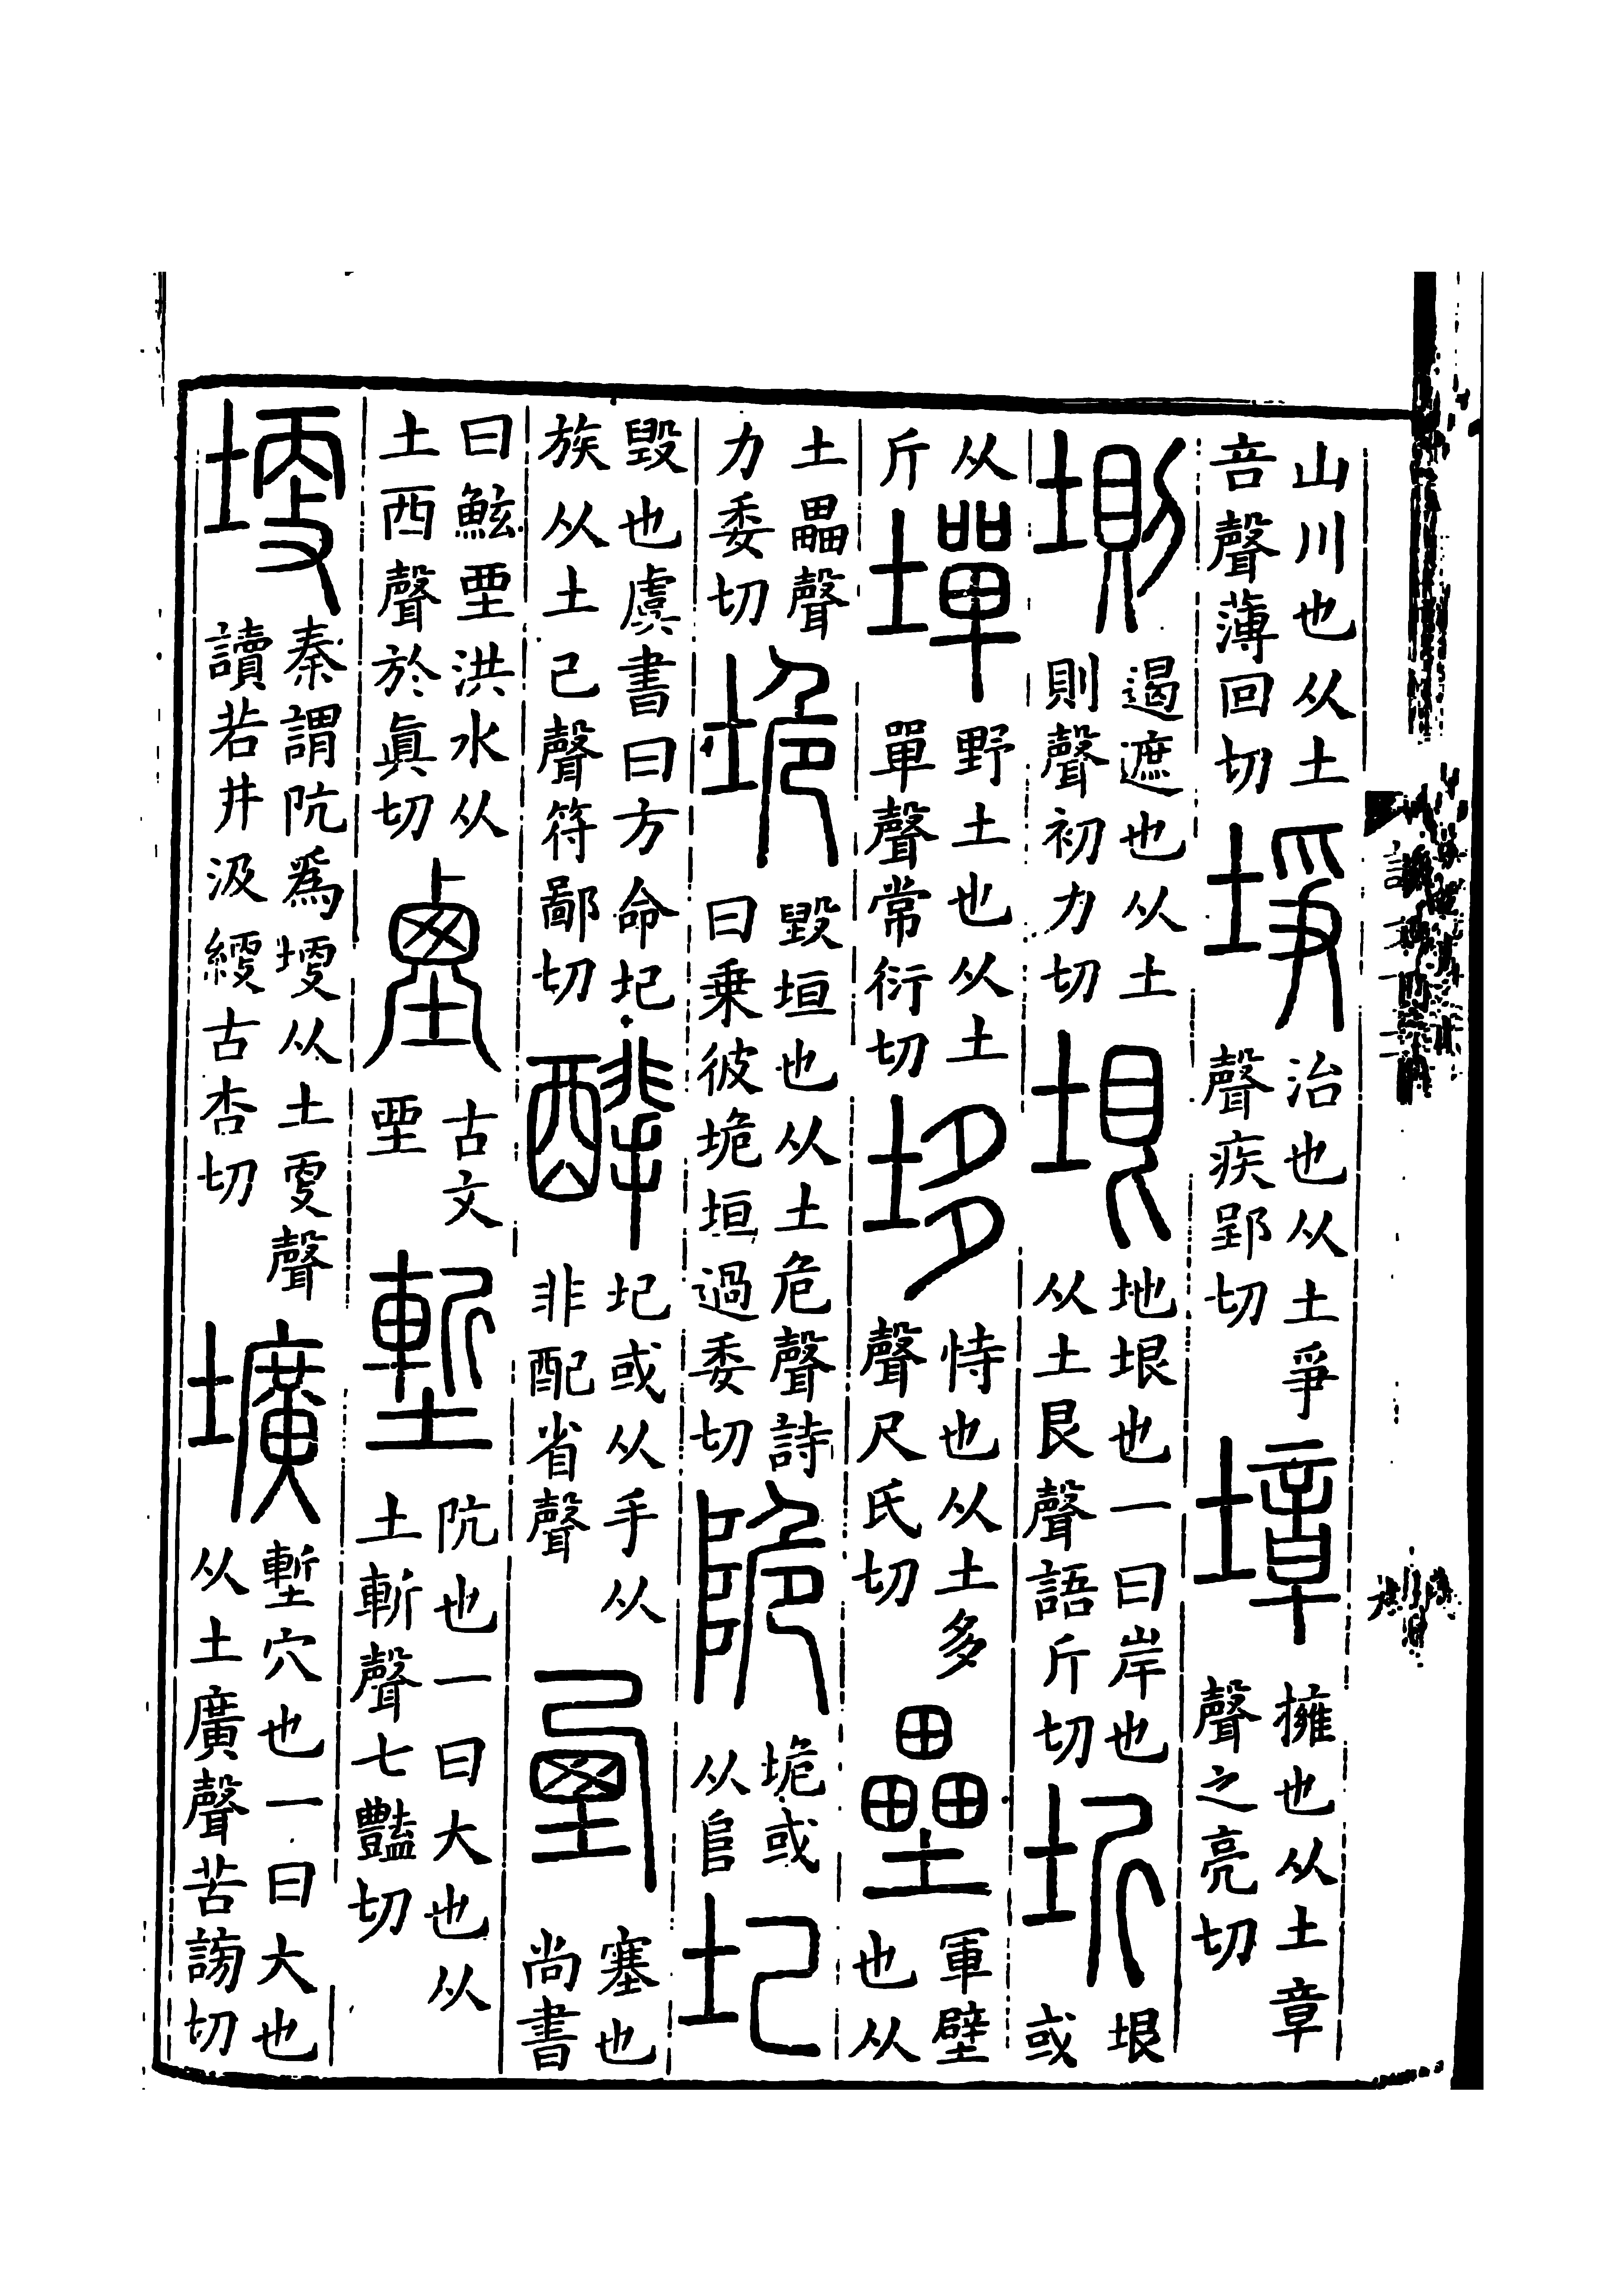 山川也从土咅聲薄回切埩治也从土爭聲疾郢切墇擁也从土章聲之亮切
𡍫遏遮也从土則聲初力切垠地垠也一曰岸也从土艮聲語斤切圻垠或
从斤墠野土也从土單聲常衍切垑恃也从土多聲尺氏切壘軍壁也从
土畾聲力委切垝毀垣也从土危聲詩曰乗彼垝垣過委切陒垝或从𨸏圮
毀也虞書曰方命圮族从土己聲符鄙切圮或从手从非配省聲垔塞也尚書
曰鮌垔洪水从土西聲於眞切古文垔塹阬也一曰大也从土斬聲七豔切
埂秦謂阬爲埂从土㪅聲讀若井汲綆古杏切壙塹穴也一曰大也从土廣聲苦謗切